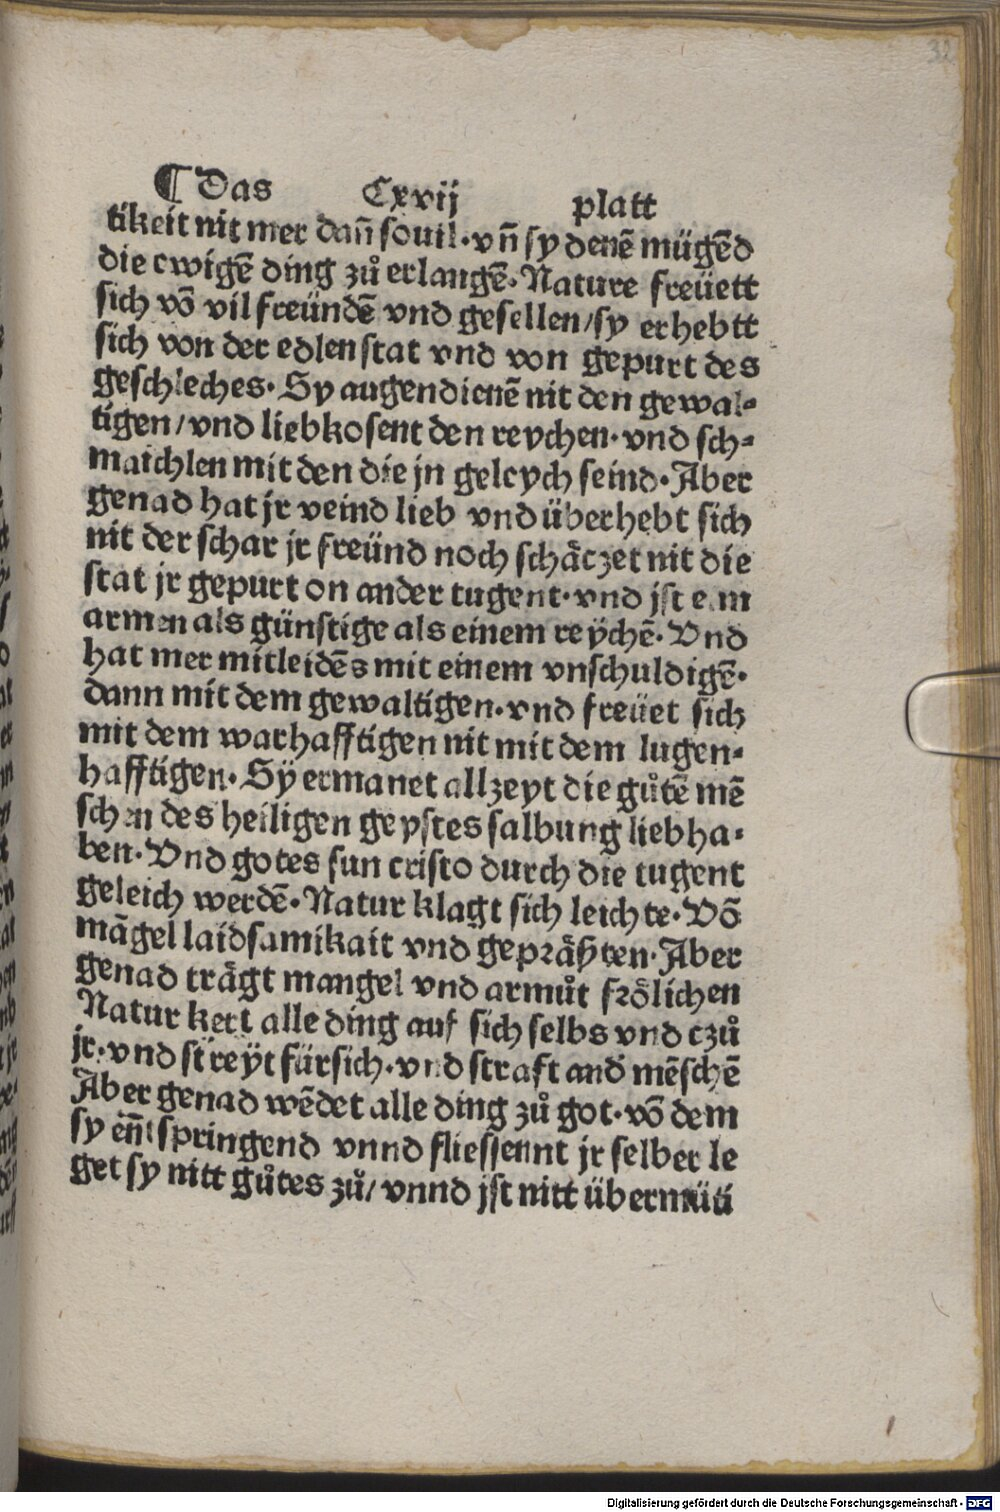 32
¶ Das Cxvij platt
tikeit nit mer dañ souil. vñ sy denē mügēd
die ewigē ding zů erlangē. Nature freüett
sich vō vil freündē vnd gesellen/sy erhebtt
sich von der edlen stat vnd von gepurt des
geschleches. Sy augendienē nit den gewal-
tigen/vnd liebkosent den reychen. vnd sch-
maichlen mit den die jn geleych seind. Aber
genad hat jr veind lieb vnd überhebt sich
nit der schar jr freünd noch schäczet nit die
stat jr gepurt on ander tugent. vnd jst eim
armen als günstige als einem reÿchē. Vnd
hat mer mitleidēs mit einem vnschuldigē.
dann mit dem gewaltigen. vnd freüet sich
mit dem warhafftigen nit mit dem lugen-
hafftigen. Sÿ ermanet allzeyt die gůtē mē
schen des heiligen geystes salbung liebha-
ben. Vnd gotes sun cristo durch die tugent
geleich werdē. Natur klagt sich leichte. Vō
māgel laidsamikait vnd geprästen. Aber
genad trägt mangel vnd armůt frölichen
Natur kert alle ding auf sich selbs vnd czů
jr. vnd streÿt fürsich. vnd straft and̄ mēschē
Aber genad wēdet alle ding zů got. vō dem
sy en̄tspringend vnnd fliessennt jr selber le
get sy nitt gůtes zů/ vnnd jst nitt übermüti
Digitalisierung gefördert durch die Deutsche Forschungsgemeinschaft - DFG